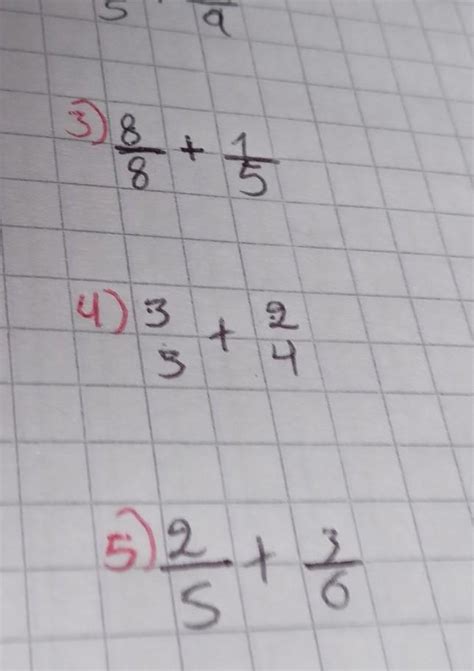 5 9
3) 8/8 + 1/5
4) 3/5 + 2/4
5) 2/5 + 3/6